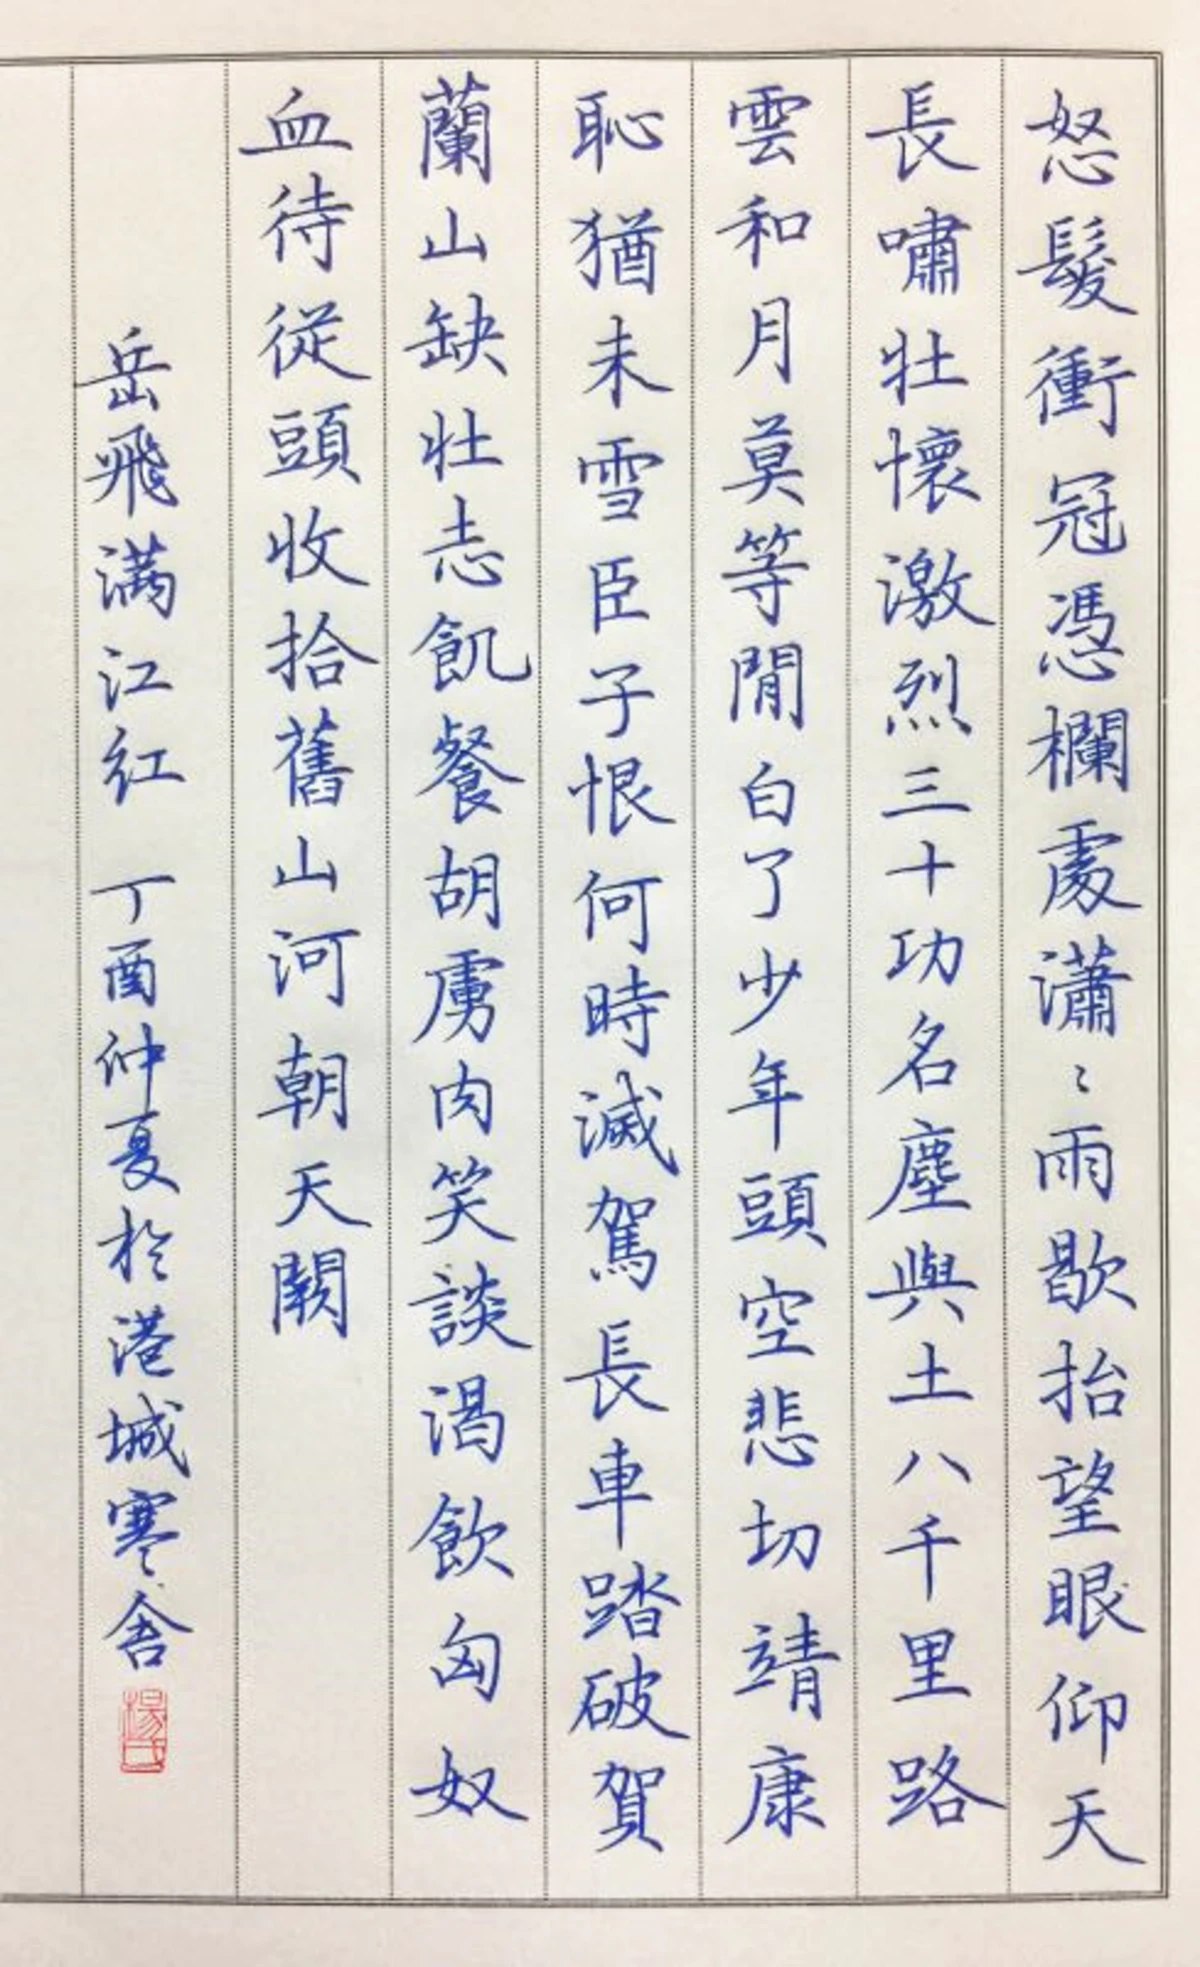 怒髮衝冠憑欄處瀟〻雨歇抬望眼仰天
長嘯壯懷激烈三十功名塵與土八千里路
雲和月莫等閒白了少年頭空悲切靖康
恥猶未雪臣子恨何時滅駕長車踏破賀
蘭山缺壯志飢餐胡虜肉笑談渴飲匈奴
血待從頭收拾舊山河朝天闕
岳飛滿江紅 丁酉仲夏於港城寒舍
楊氏